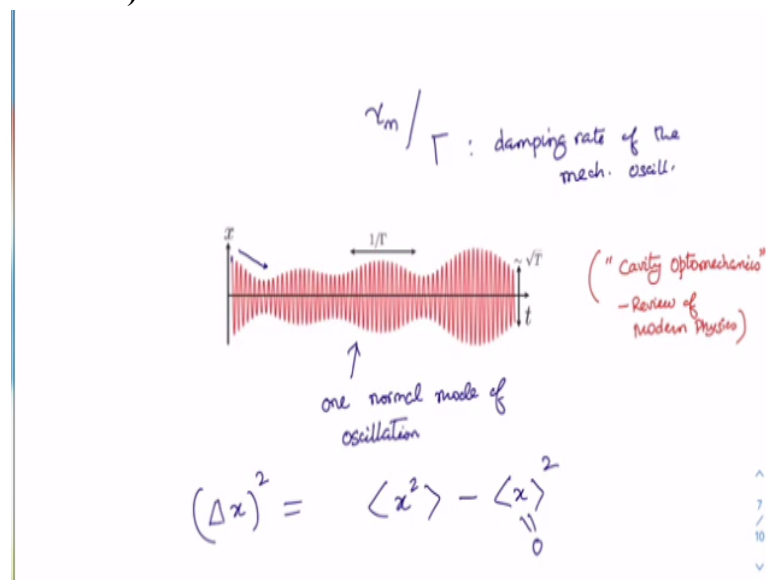 γm / Γ : damping rate of the
mech. oscill.
x
1/Γ
~ √T
t
("Cavity Optomechanics"
- Review of
Modern Physics)
one normal mode of
oscillation
(Δx)² = ⟨x²⟩ - ⟨x⟩²
||
0
7
/
10